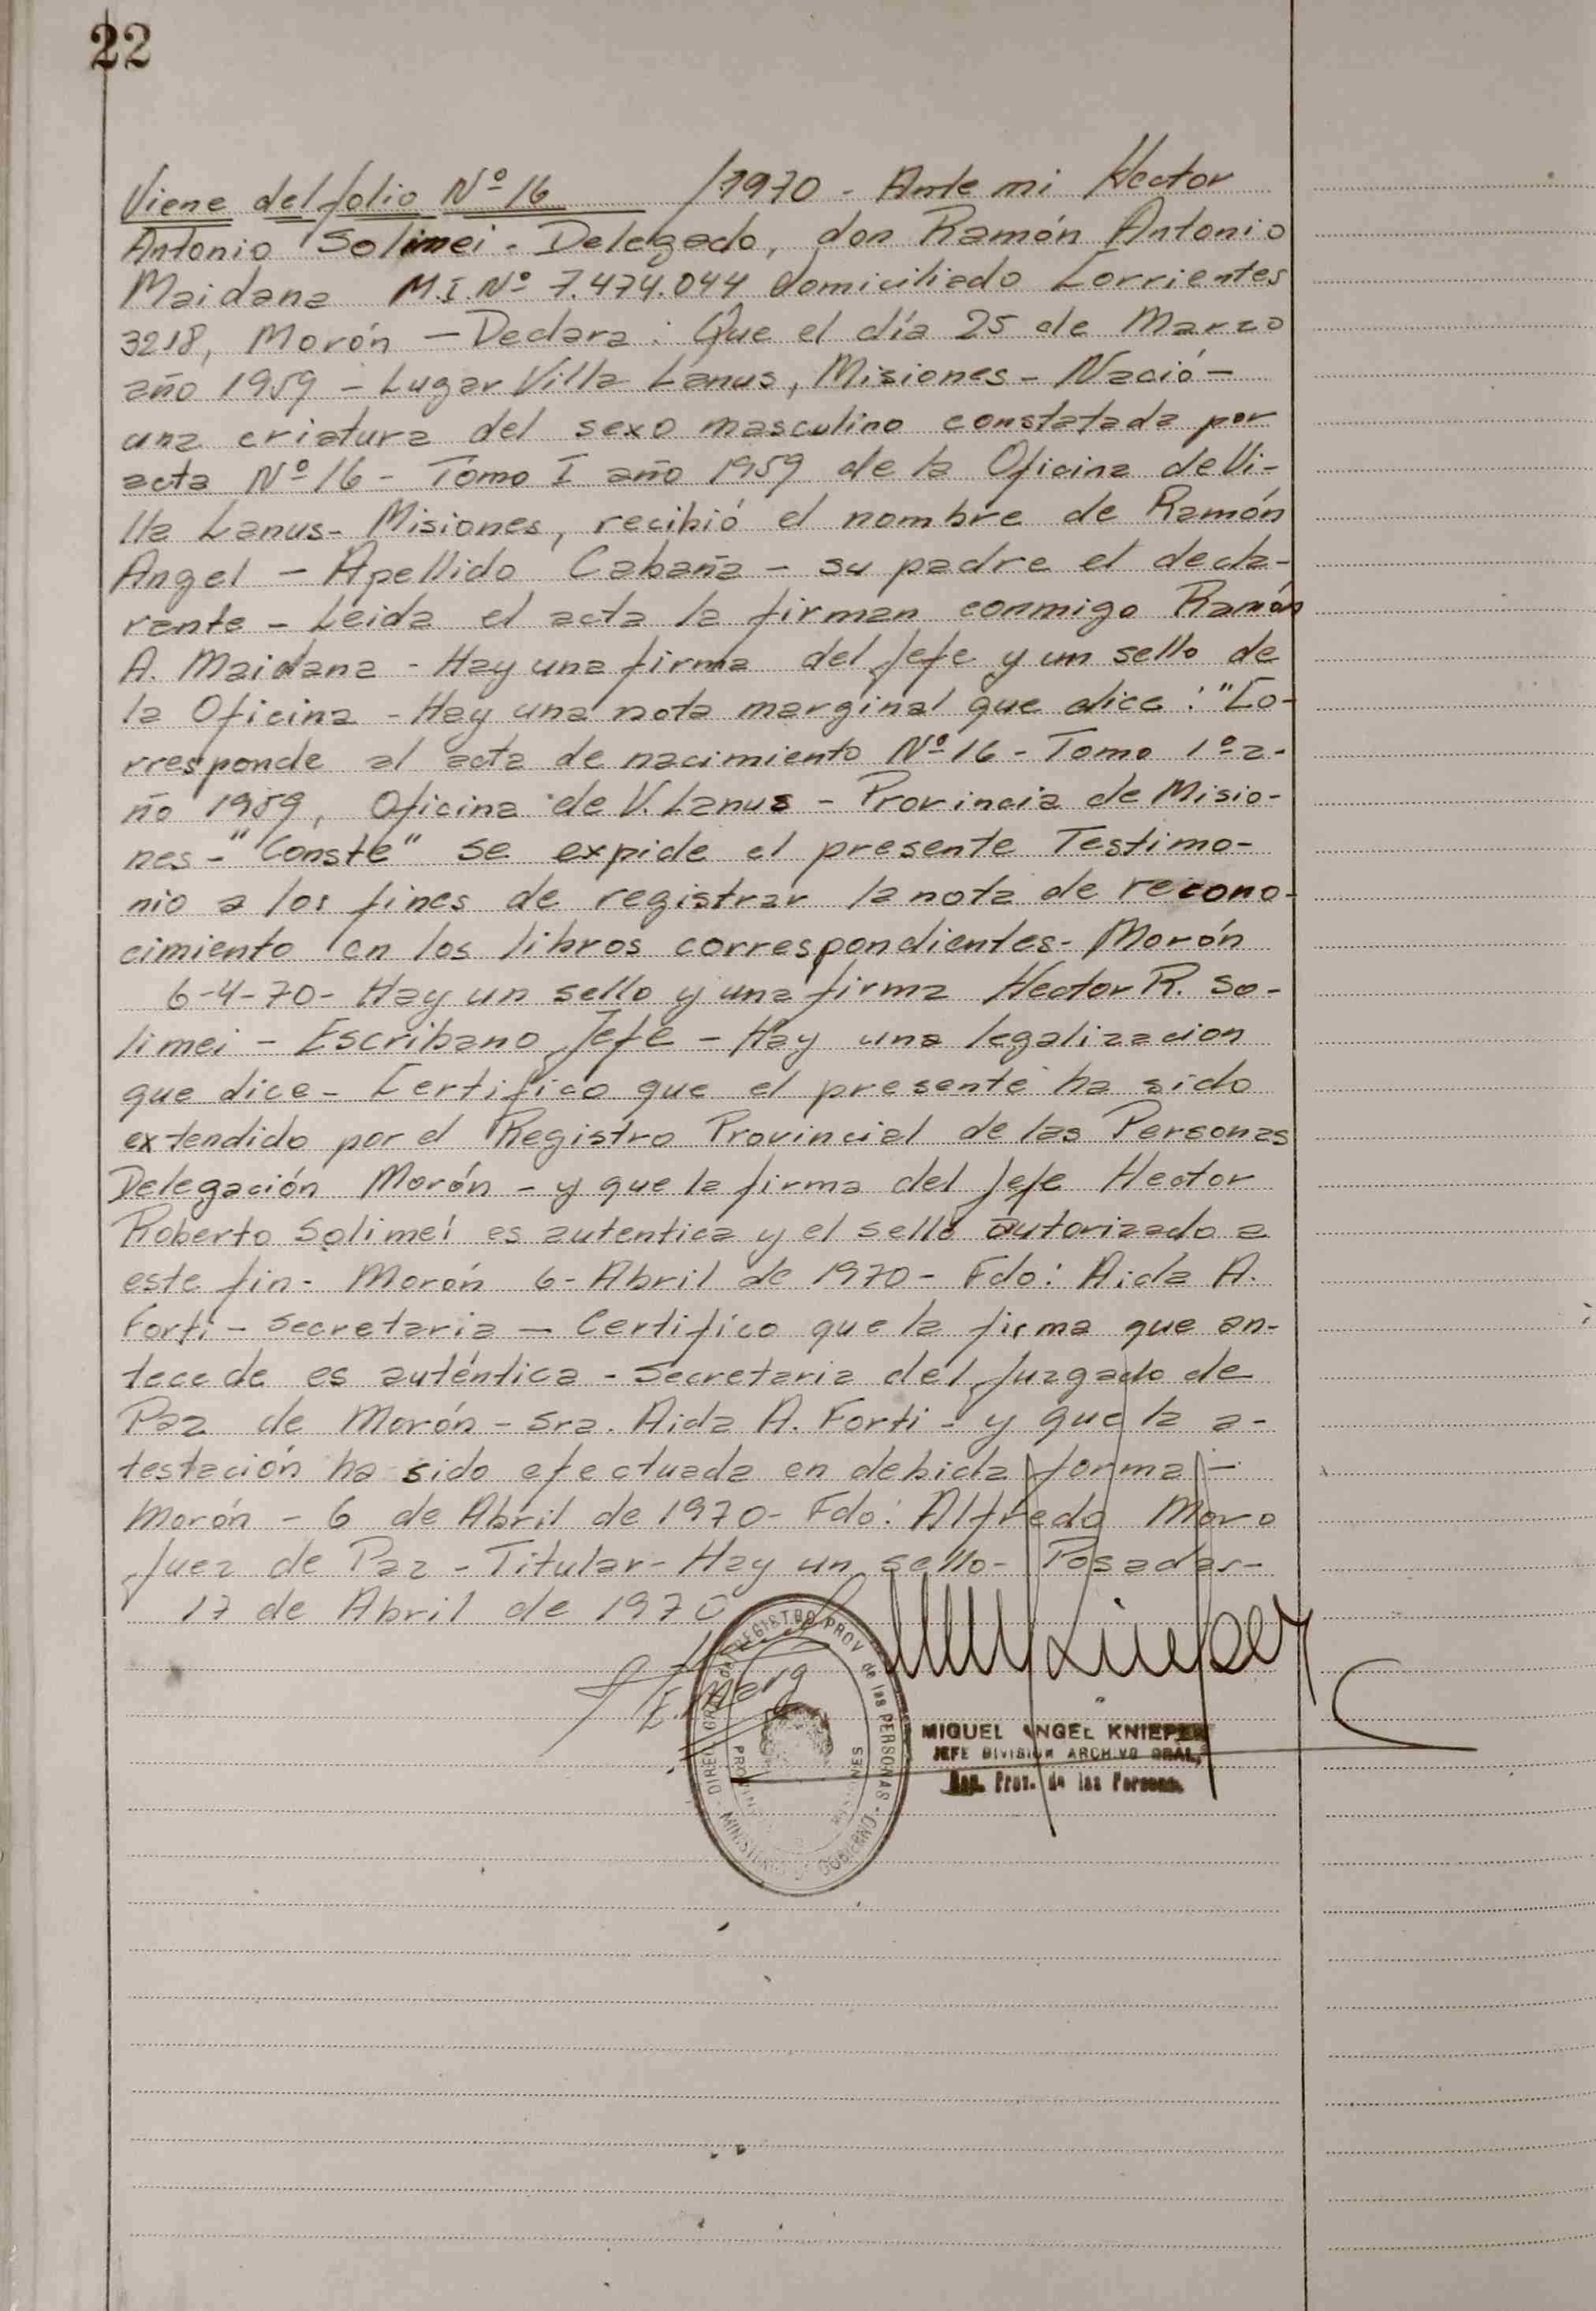 22
Viene del folio Nº 16 /1970 - Ante mi Hector
Antonio Solimei - Delegado, don Ramón Antonio
Maidana M.I. Nº 7.474.044 domiciliado Corrientes
3218, Morón - Declara: Que el día 25 de Marzo
año 1959 - Lugar Villa Lanus, Misiones - Nació -
una criatura del sexo masculino constatada por
acta Nº 16 - Tomo I año 1959 de la Oficina de Vi-
lla Lanus - Misiones, recibió el nombre de Ramón
Angel - Apellido Cabaña - su padre el decla-
rante - Leida el acta la firman conmigo Ramón
A. Maidana - Hay una firma del Jefe y un sello de
la Oficina - Hay una nota marginal que dice: "Co-
rresponde al acta de nacimiento Nº 16 - Tomo 1º a-
ño 1959, Oficina de V. Lanus - Provincia de Misio-
nes - "Conste" se expide el presente Testimo-
nio a los fines de registrar la nota de recono-
cimiento en los libros correspondientes - Morón
6-4-70 - Hay un sello y una firma Hector R. So-
limei - Escribano Jefe - Hay una legalizacion
que dice - Certifico que el presente ha sido
extendido por el Registro Provincial de las Personas
Delegación Morón - y que la firma del Jefe Hector
Roberto Solimei es autentica y el sello autorizado a
este fin - Morón 6 - Abril de 1970 - Fdo: Aida A.
Forti - Secretaria - Certifico que la firma que an-
tecede es auténtica - Secretaria del Juzgado de
Paz de Morón - Sra. Aida A. Forti - y que la a-
testación ha sido efectuada en debida forma -
Morón - 6 de Abril de 1970 - Fdo: Alfredo Moro
Juez de Paz - Titular - Hay un sello - Posadas -
17 de Abril de 1970
DIREC. GRAL. del REGISTRO PROV de las PERSONAS - MINISTERIO DE GOBIERNO
PROVINCIA MISIONES
MIGUEL ANGEL KNIEPER
JEFE DIVISION ARCHIVO GRAL,
Prov. de las Personas